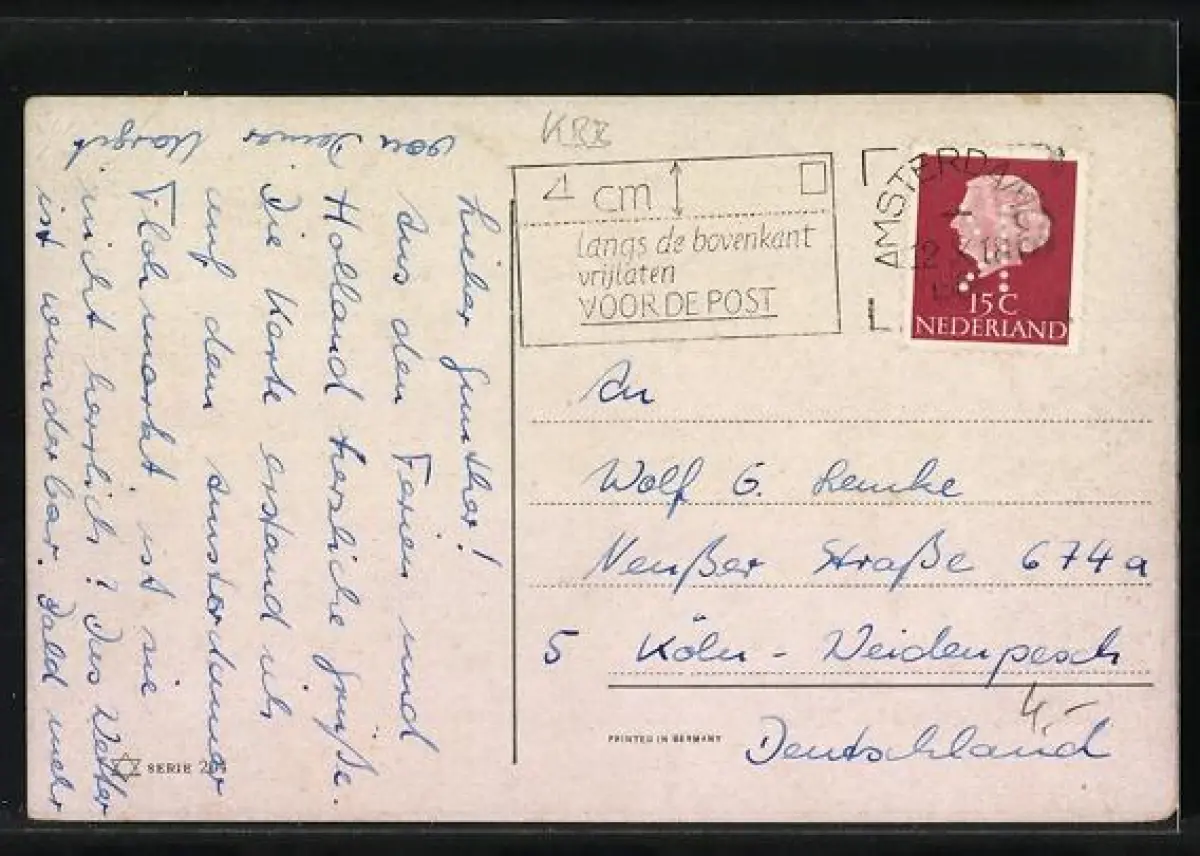 Lieber Gunther!
Aus den Ferien und
Holland herzliche Grüße.
Die Karte erstand ich
auf dem Amsterdamer
Flohmarkt. ist sie
nicht herrlich? Das Wetter
ist wunderbar. Bald mehr
von Deiner
Margit
SERIE
KRZ
4 cm
langs de bovenkant
vrijlaten
VOOR DE POST
AMSTERDAM
12
15 C
NEDERLAND
An
Wolf G. Lemke
Neußer Straße 674a
5 Köln - Weidenpesch
Deutschland
4,-
PRINTED IN GERMANY